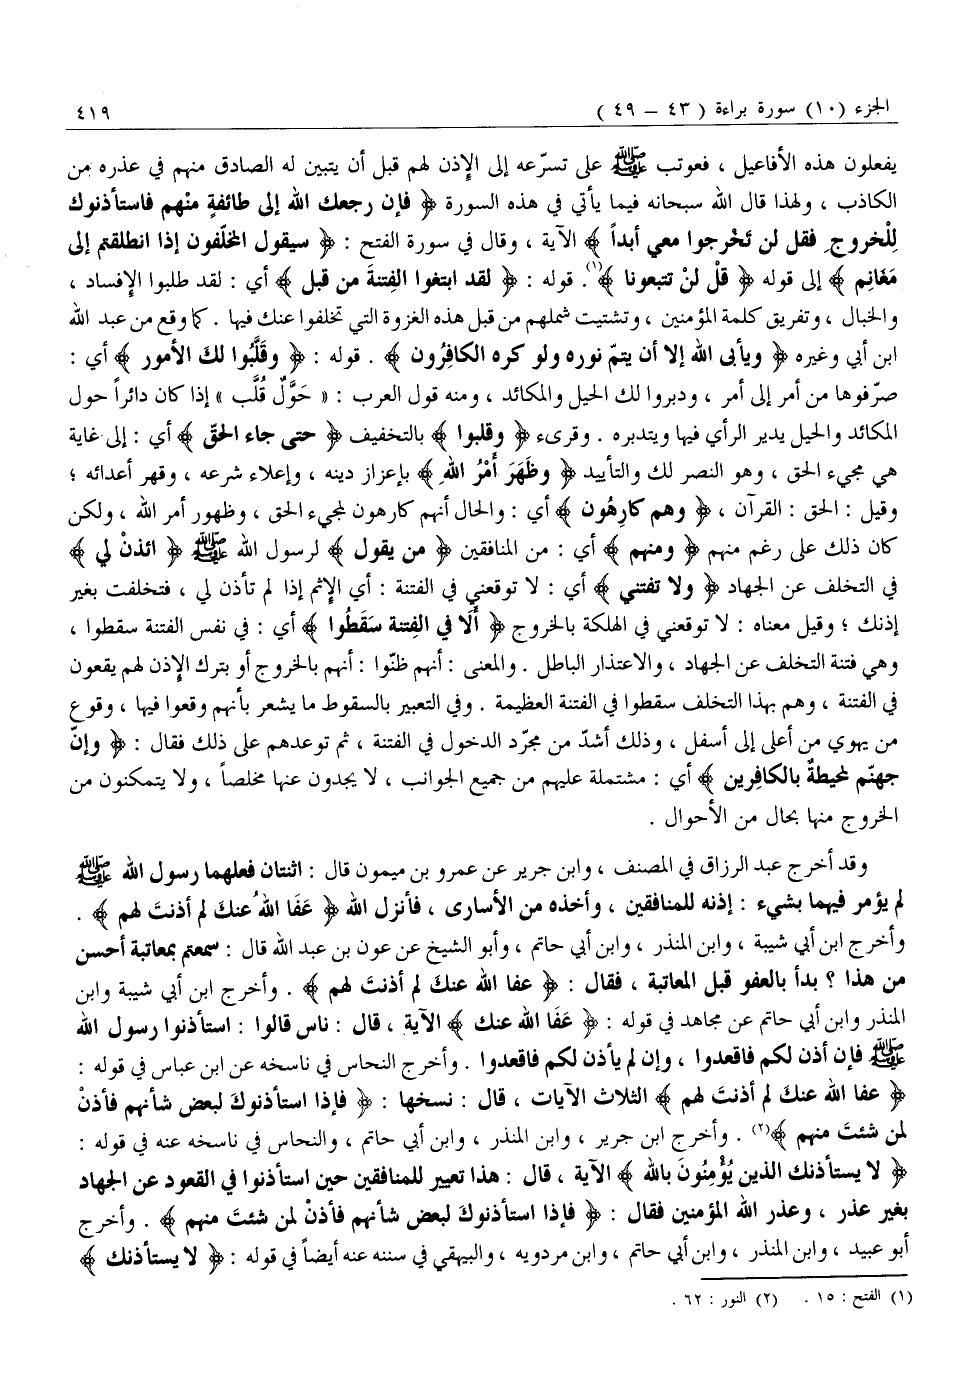 الجزء (١٠) سورة براءة ( ٤٣ – ٤٩ ) ٤١٩
يفعلون هذه الأفاعيل ، فعوتب ﷺ على تسرّعه إلى الإذن لهم قبل أن يتبين له الصادق منهم في عذره من
الكاذب ، ولهذا قال الله سبحانه فيما يأتي في هذه السورة ﴿ فإن رجعك الله إلى طائفةٍ منْهم فاستأذنوك
لِلْخروجِ فقل لن تَخْرجوا معي أبداً ﴾ الآية ، وقال في سورة الفتح : ﴿ سيقول المخلّفون إذا انطلقتم إلى
مَغَانِم ﴾ إلى قوله ﴿ قُلْ لنْ تتبعونا ﴾(١). قوله : ﴿ لقد ابتغوا الفِتنةَ من قبل ﴾ أي : لقد طلبوا الإفساد ،
والخبال ، وتفريق كلمة المؤمنين ، وتشتيت شملهم من قبل هذه الغزوة التي تخلفوا عنك فيها . كما وقع من عبد الله
ابن أبي وغيره ﴿ ويأبى الله إلا أن يتمّ نوره ولو كره الكافِرُون ﴾ . قوله : ﴿ وقَلَّبُوا لكَ الأمور ﴾ أي :
صرّفوها من أمر إلى أمر ، ودبروا لك الحيل والمكائد ، ومنه قول العرب : « حَوَّلٌ قُلَّب » إذا كان دائراً حول
المكائد والحيل يدير الرأي فيها ويتدبره . وقرىء ﴿ وقلبوا ﴾ بالتخفيف ﴿ حتى جاء الحقّ ﴾ أي : إلى غاية
هي مجيء الحق ، وهو النصر لك والتأييد ﴿ وظَهَرَ أَمْرُ اللهِ ﴾ بإعزاز دينه ، وإعلاء شرعه ، وقهر أعدائه ؛
وقيل : الحق : القرآن ، ﴿ وهم كارِهُون ﴾ أي : والحال أنهم كارهون لمجيء الحق ، وظهور أمر الله ، ولكن
كان ذلك على رغم منهم ﴿ ومنهم ﴾ أي : من المنافقين ﴿ من يقول ﴾ لرسول الله ﷺ ﴿ ائذنْ لي ﴾
في التخلف عن الجهاد ﴿ ولا تفتني ﴾ أي : لا توقعني في الفتنة : أي الإثم إذا لم تأذن لي ، فتخلفت بغير
إذنك ؛ وقيل معناه : لا توقعني في الهلكة بالخروج ﴿ أَلَا في الفِتنة سَقَطُوا ﴾ أي : في نفس الفتنة سقطوا ،
وهي فتنة التخلف عن الجهاد ، والاعتذار الباطل . والمعنى : أنهم ظنّوا : أنهم بالخروج أو بترك الإذن لهم يقعون
في الفتنة ، وهم بهذا التخلف سقطوا في الفتنة العظيمة . وفي التعبير بالسقوط ما يشعر بأنهم وقعوا فيها ، وقوع
من يهوي من أعلى إلى أسفل ، وذلك أشدّ من مجرّد الدخول في الفتنة ، ثم توعدهم على ذلك فقال : ﴿ وإنّ
جهنّم لمحيطةٌ بالكافِرِين ﴾ أي : مشتملة عليهم من جميع الجوانب ، لا يجدون عنها مخلصاً ، ولا يتمكنون من
الخروج منها بحال من الأحوال .
وقد أخرج عبد الرزاق في المصنف ، وابن جرير عن عمرو بن ميمون قال : اثنتان فعلهما رسول الله ﷺ
لم يؤمر فيهما بشيء : إذنه للمنافقين ، وأخذه من الأسارى ، فأنزل الله ﴿ عَفَا اللهُ عنكَ لم أذنتَ لهم ﴾ .
وأخرج ابن أبي شيبة ، وابن المنذر ، وابن أبي حاتم ، وأبو الشيخ عن عون بن عبد الله قال : سمعتم بمعاتبة أحسن
من هذا ؟ بدأ بالعفو قبل المعاتبة ، فقال : ﴿ عفا الله عنكَ لم أذنتَ لهم ﴾ . وأخرج ابن أبي شيبة وابن
المنذر وابن أبي حاتم عن مجاهد في قوله : ﴿ عَفَا الله عنك ﴾ الآية ، قال : ناس قالوا : استأذنوا رسول الله
ﷺ فإن أذن لكم فاقعدوا ، وإن لم يأذن لكم فاقعدوا . وأخرج النحاس في ناسخه عن ابن عباس في قوله :
﴿ عفا الله عنك لم أذنتَ لهم ﴾ الثلاث الآيات ، قال : نسخها : ﴿ فإذا استأذنوكَ لبعض شأنهم فأذنْ
لمن شئتَ منهم ﴾(٢) . وأخرج ابن جرير ، وابن المنذر ، وابن أبي حاتم ، والنحاس في ناسخه عنه في قوله :
﴿ لا يستأذنك الذين يُؤْمِنُونَ بالله ﴾ الآية ، قال : هذا تعيير للمنافقين حين استأذنوا في القعود عن الجهاد
بغير عذر ، وعذر الله المؤمنين فقال : ﴿ فإذا استأذنوكَ لبعض شأنهم فأذنْ لمن شئتَ منهم ﴾ . وأخرج
أبو عبيد ، وابن المنذر ، وابن أبي حاتم ، وابن مردويه ، والبيهقي في سننه عنه أيضاً في قوله : ﴿ لا يستأذنك ﴾
(١) الفتح : ١٥ . (٢) النور : ٦٢ .